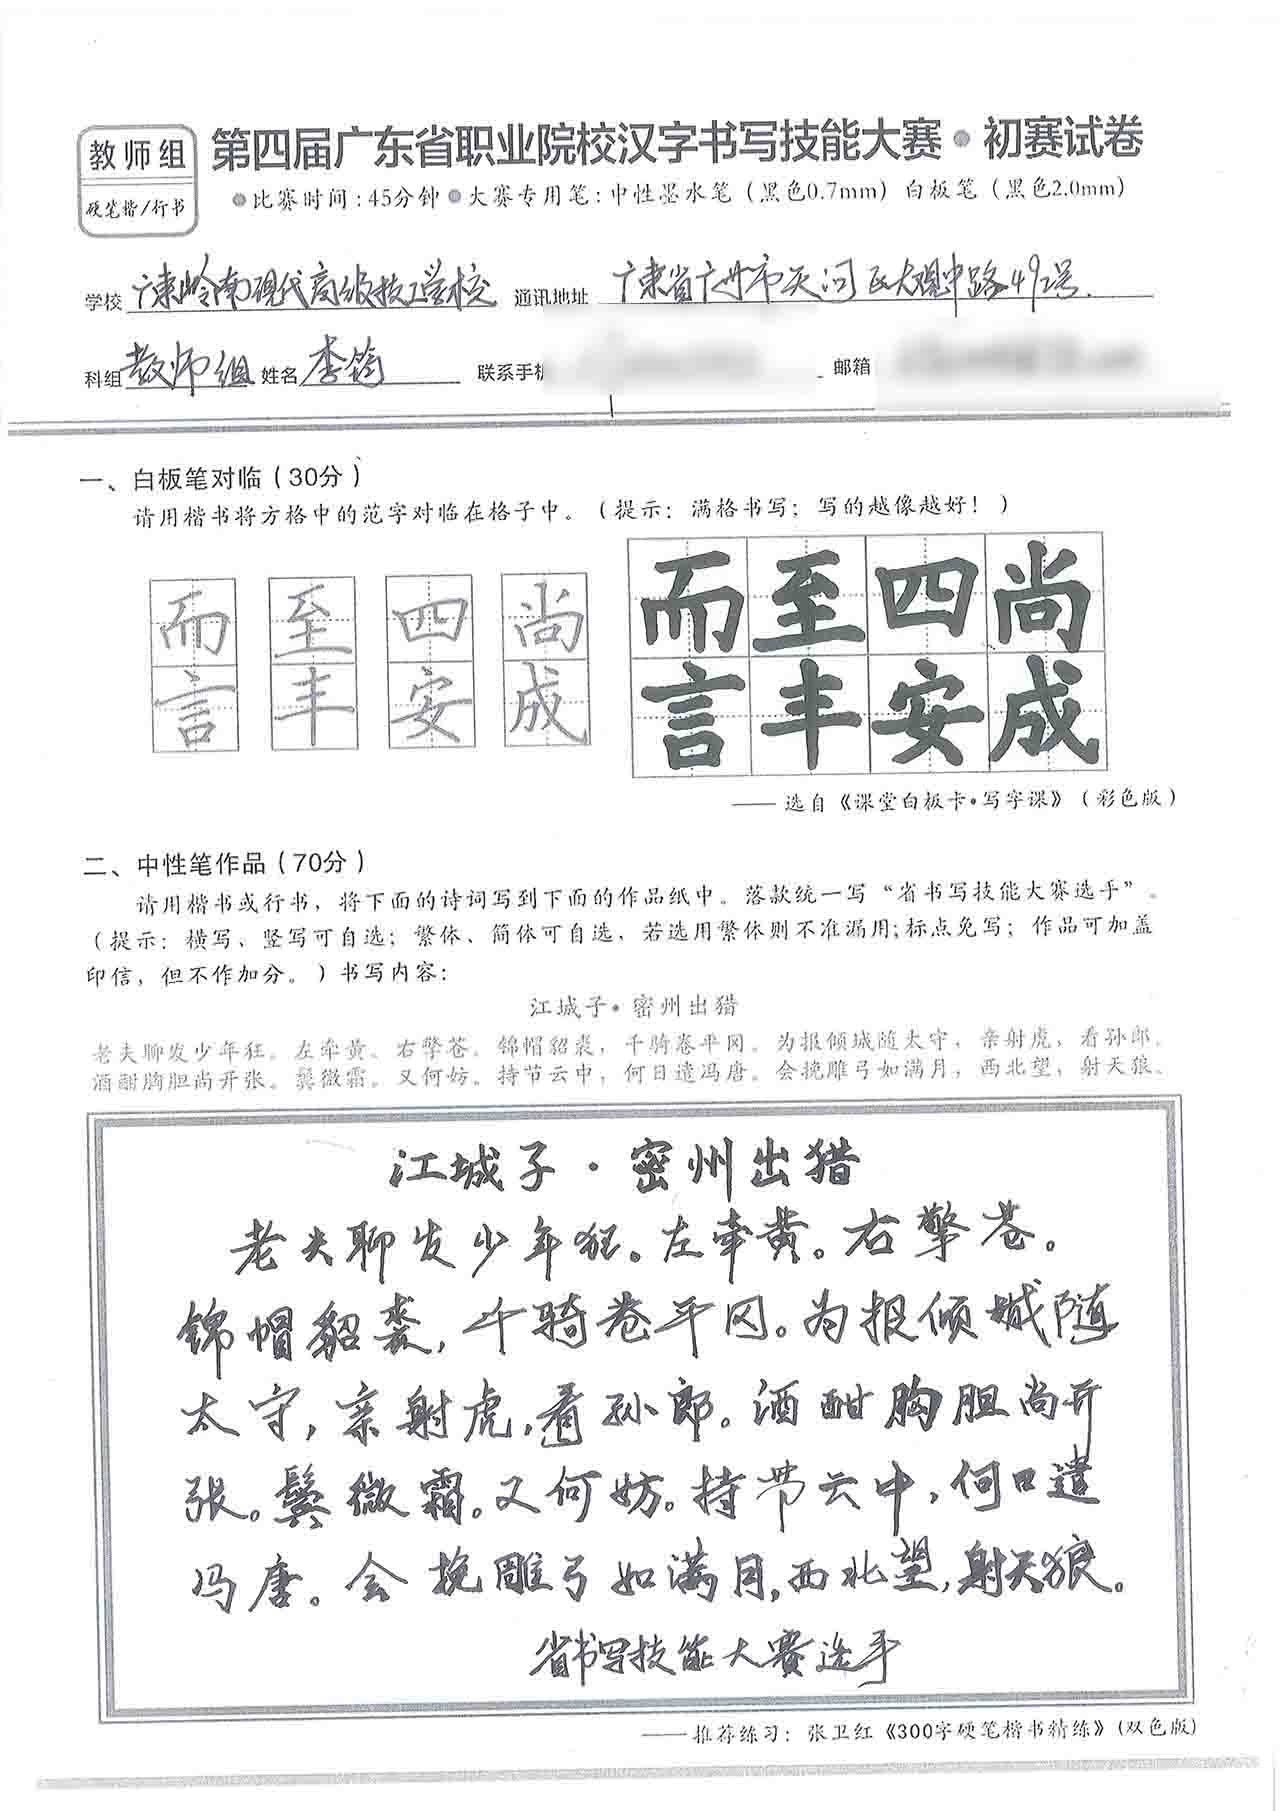 教师组
硬笔楷/行书
第四届广东省职业院校汉字书写技能大赛•初赛试卷
●比赛时间:45分钟●大赛专用笔:中性墨水笔(黑色0.7mm)白板笔(黑色2.0mm)
学校 广东岭南现代高级技工学校 通讯地址 广东省广州市天河区大观中路492号.
科组 教师组 姓名 李筠 联系手机 邮箱
一、白板笔对临(30分)
请用楷书将方格中的范字对临在格子中。(提示:满格书写;写的越像越好!)
而 至 四 尚 而至四尚
言 丰 安 成 言丰安成
——选自《课堂白板卡•写字课》(彩色版)
二、中性笔作品(70分)
请用楷书或行书,将下面的诗词写到下面的作品纸中。落款统一写“省书写技能大赛选手”。
(提示:横写、竖写可自选;繁体、简体可自选,若选用繁体则不准漏用;标点免写;作品可加盖
印信,但不作加分。)书写内容:
江城子•密州出猎
老夫聊发少年狂。左牵黄。右擎苍。锦帽貂裘,千骑卷平冈。为报倾城随太守,亲射虎,看孙郎。
酒酣胸胆尚开张。鬓微霜。又何妨。持节云中,何日遣冯唐。会挽雕弓如满月,西北望,射天狼。
江城子·密州出猎
老夫聊发少年狂。左牵黄。右擎苍。
锦帽貂裘,千骑卷平冈。为报倾城随
太守,亲射虎,看孙郎。酒酣胸胆尚开
张。鬓微霜。又何妨。持节云中,何日遣
冯唐。会挽雕弓如满月,西北望,射天狼。
省书写技能大赛选手
——推荐练习:张卫红《300字硬笔楷书精练》(双色版)